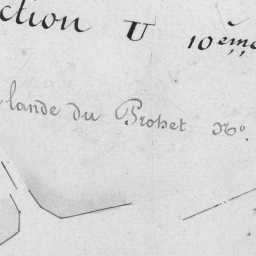 ction U 10ème
lande du Brohet No.